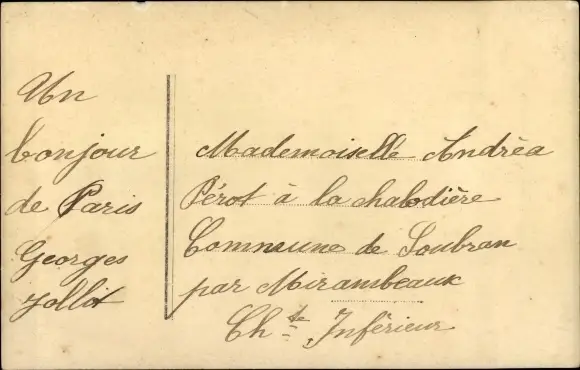 Un
bonjour
de Paris
Georges
Jollit
Mademoisellé Andréa
Pérot à la chalodière
Commeune de Soubran
par Miransbeaux
Ch te Inférieur